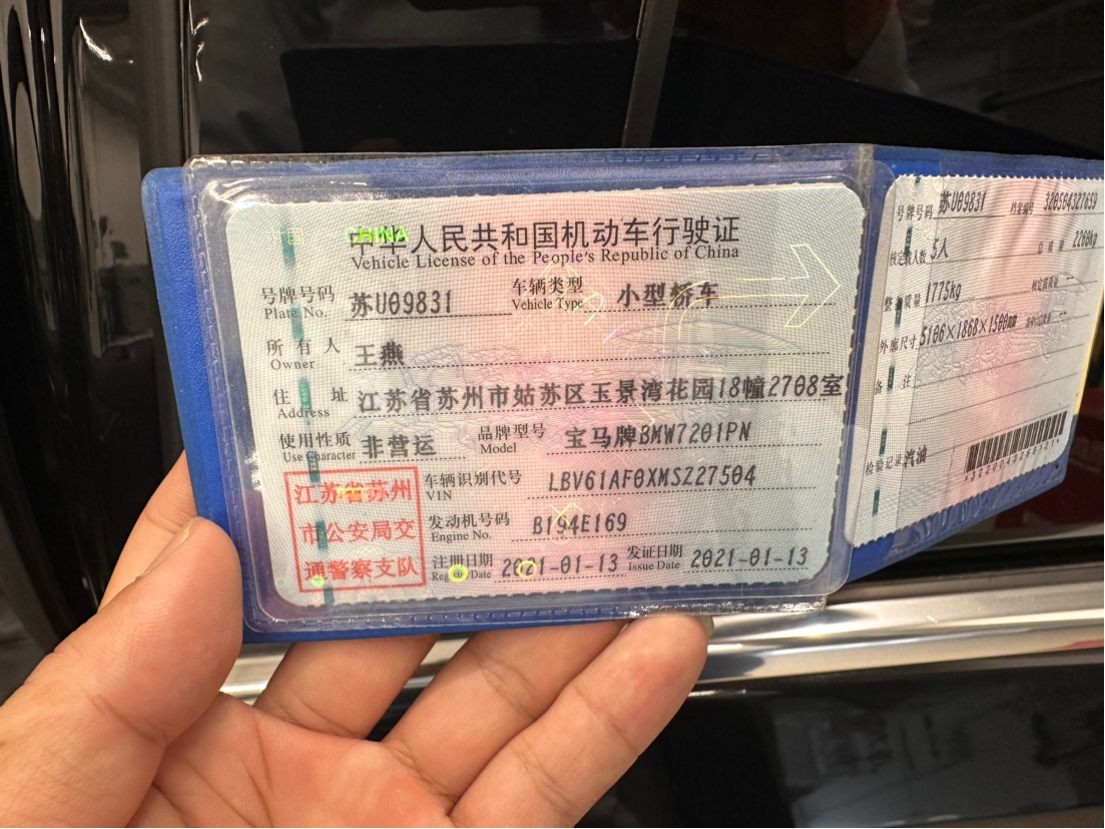 CHINA
中华人民共和国机动车行驶证
Vehicle License of the People's Republic of China
号牌号码 Plate No. 苏U09831 车辆类型 Vehicle Type 小型轿车
所有人 Owner 王燕
住址 Address 江苏省苏州市姑苏区玉景湾花园18幢2708室
使用性质 Use Character 非营运 品牌型号 Model 宝马牌BMW7201PN
车辆识别代号 VIN LBV61AF0XMSZ27504
发动机号码 Engine No. B194E169
注册日期 Register Date 2021-01-13 发证日期 Issue Date 2021-01-13
江苏省苏州
市公安局交
通警察支队
号牌号码 苏U09831 档案编号
核定载人数 5人 总质量 2260kg
整备质量 1775kg 核定载质量 --
外廓尺寸 5106×1868×1500mm --
备注
检验记录 汽油